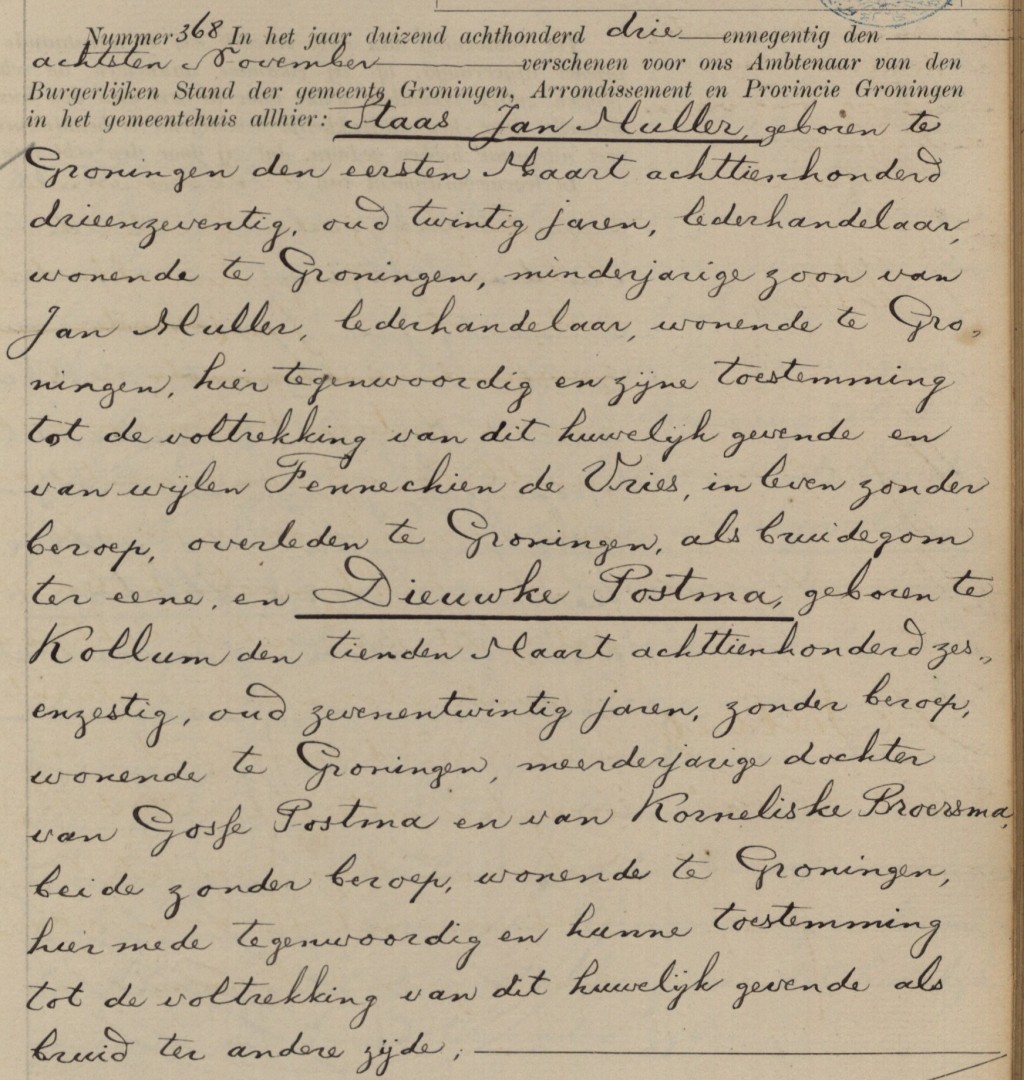 Nummer 368 In het jaar duizend achthonderd drie ennegentig den
achtsten November verschenen voor ons Ambtenaar van den
Burgerlijken Stand der gemeente Groningen, Arrondissement en Provincie Groningen
in het gemeentehuis allhier: Staas Jan Muller, geboren te
Groningen den eersten Maart achttienhonderd
drieenzeventig, oud twintig jaren, lederhandelaar,
wonende te Groningen, minderjarige zoon van
Jan Muller, lederhandelaar, wonende te Gro„
ningen, hier tegenwoordig en zijne toestemming
tot de voltrekking van dit huwelijk gevende en
van wijlen Fennechien de Vries, in leven zonder
beroep, overleden te Groningen, als bruidegom
ter eene, en Dieuwke Postma, geboren te
Kollum den tienden Maart achttienhonderd zes„
enzestig, oud zevenentwintig jaren, zonder beroep,
wonende te Groningen, meerderjarige dochter
van Gosse Postma en van Korneliske Broersma,
beide zonder beroep, wonende te Groningen,
hier mede tegenwoordig en hunne toestemming
tot de voltrekking van dit huwelijk gevende als
bruid ter andere zijde;